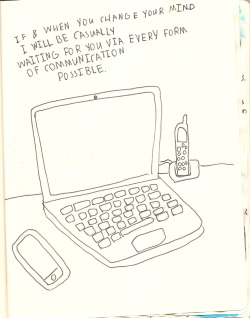 IF & WHEN YOU CHANGE YOUR MIND
I WILL BE CASUALLY
WAITING FOR YOU VIA EVERY FORM
OF COMMUNICATION
POSSIBLE.